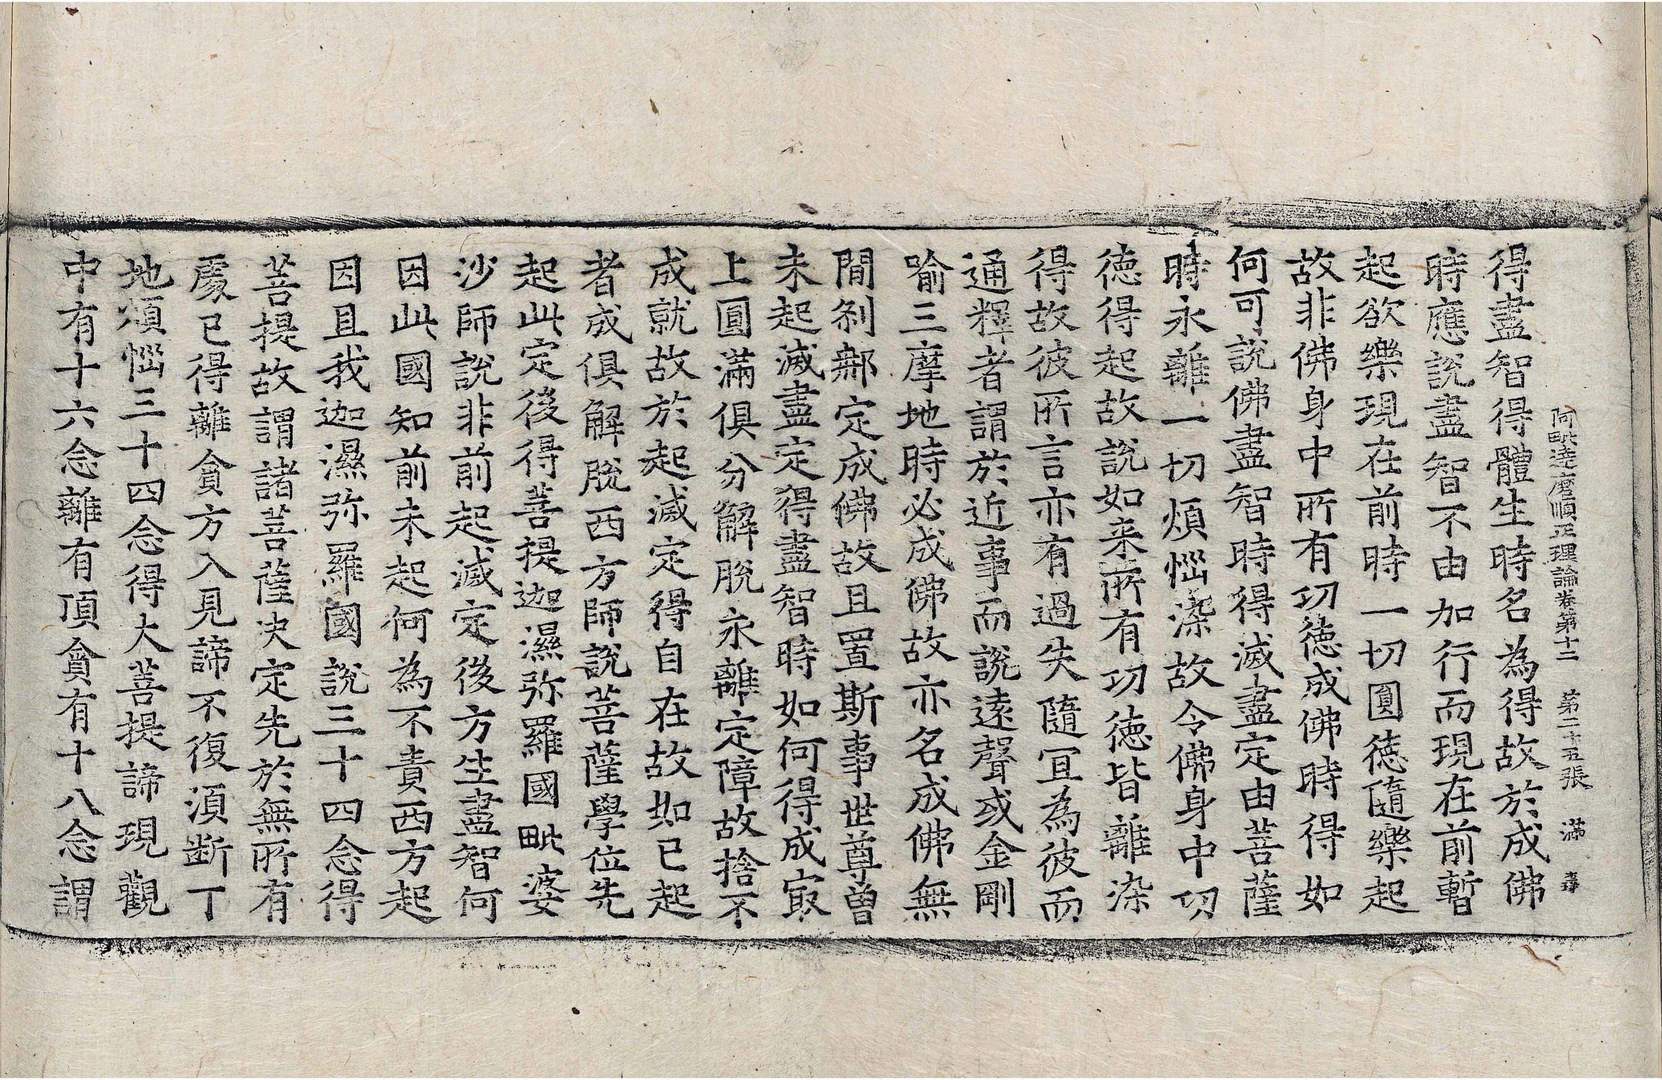 阿毗達磨順正理論卷第十二 第二十五張 滿
得盡智得得體生時名為得故於成佛
時應說盡智不由加行而現在前暫
起欲樂現在前時一切圓徳隨樂起
故非佛身中所有功徳成佛時得如
何可說佛盡智時得滅盡定由菩薩
時永離一切煩惱染故令佛身中功
徳得起故說如来所有功徳皆離染
得故彼所言亦有過失隨冝為彼而
通釋者謂於近事而說遠聲或金剛
喻三摩地時必成佛故亦名成佛無
間剎那定成佛故且置斯事世尊曽
未起滅盡定得盡智時如何得成㝡
上圓滿俱分解脫永離定障故捨不
成就故於起滅定得自在故如已起
者成俱解脫西方師說菩薩學位先
起此定後得菩提迦濕弥羅國毗婆
沙師說非前起滅定後方生盡智何
因此國知前未起何為不責西方起
因且我迦濕弥羅國說三十四念得
菩提故謂諸菩薩決定先於無所有
處已得離貪方入見諦不復湏断下
地煩惱三十四念得大菩提諦現觀
中有十六念離有頂貪有十八念謂